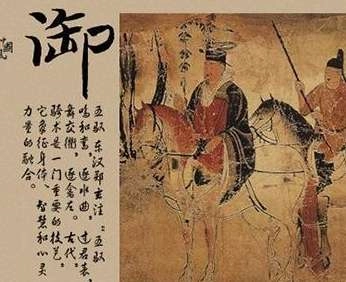 御
五驭 东汉郑玄注：五驭
鸣和鸾，逐水曲，过君表，
舞交衢，逐禽左。古代，
骑术是一门重要的技艺，
它象征身体、智慧和心灵
力量的融合。